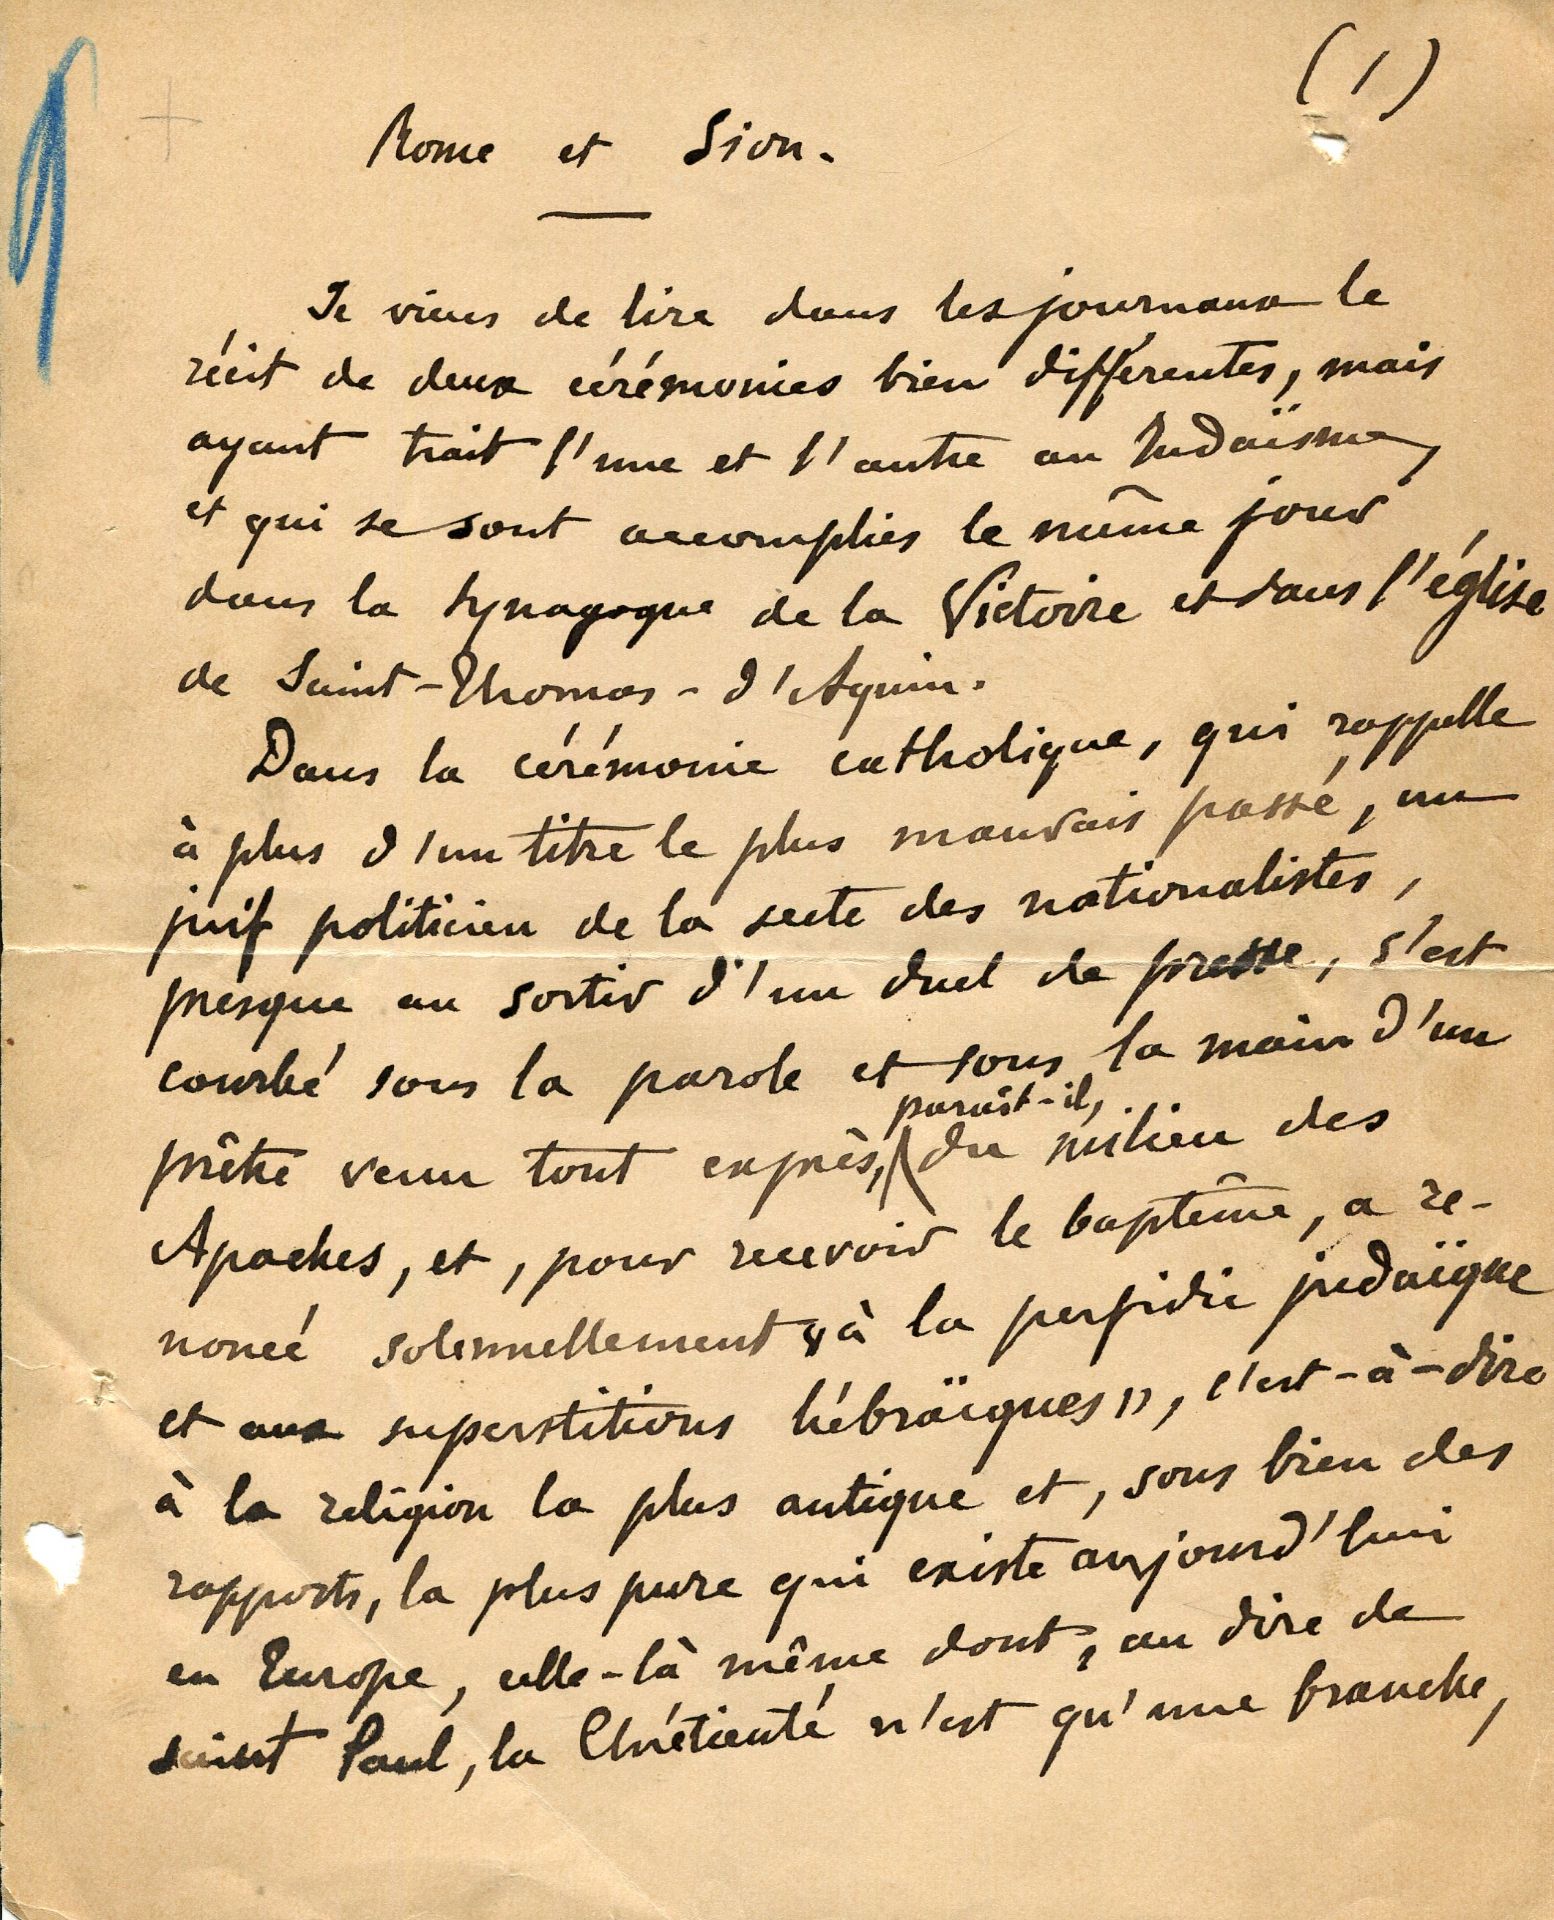 (1)
Rome et Sion.
Je viens de lire dans les journaux le
récit de deux cérémonies bien différentes, mais
ayant trait l'une et l'autre au Judaïsme,
et qui se sont accomplies le même jour
dans la synagogue de la Victoire et dans l'église
de Saint-Thomas-d'Aquin.
Dans la cérémonie catholique, qui rappelle
à plus d'un titre le plus mauvais passé, un
juif politicien de la secte des nationalistes,
presque au sortir d'un duel de presse, s'est
courbé sous la parole et sous la main d'un
paraît-il,
prêtre venu tout exprès, du milieu des
Apaches, et, pour recevoir le baptême, a re-
noncé solennellement « à la perfidie judaïque
et aux superstitions hébraïques », c'est-à-dire
à la religion la plus antique et, sous bien des
rapports, la plus pure qui existe aujourd'hui
en Europe, celle-là même dont, au dire de
saint Paul, la Chrétienté n'est qu'une branche,